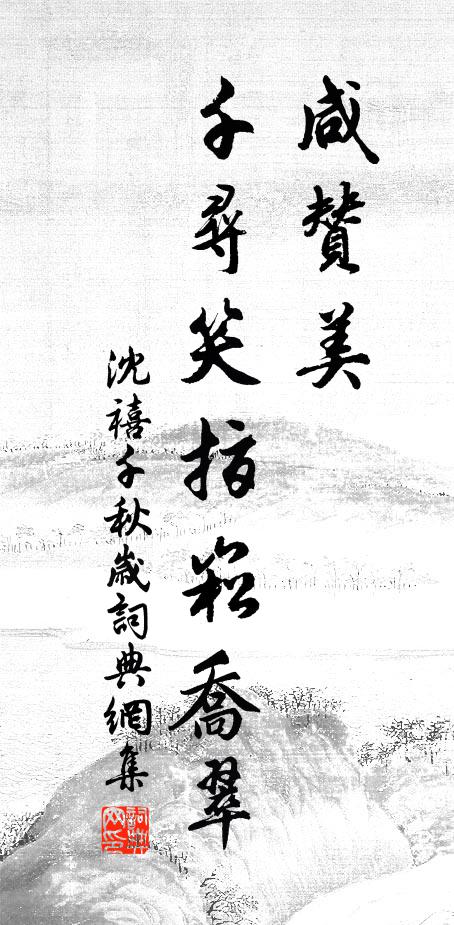 咸賛美
千尋笑指喬翠
沈禧千秋歲詞典網集
詞典
网印